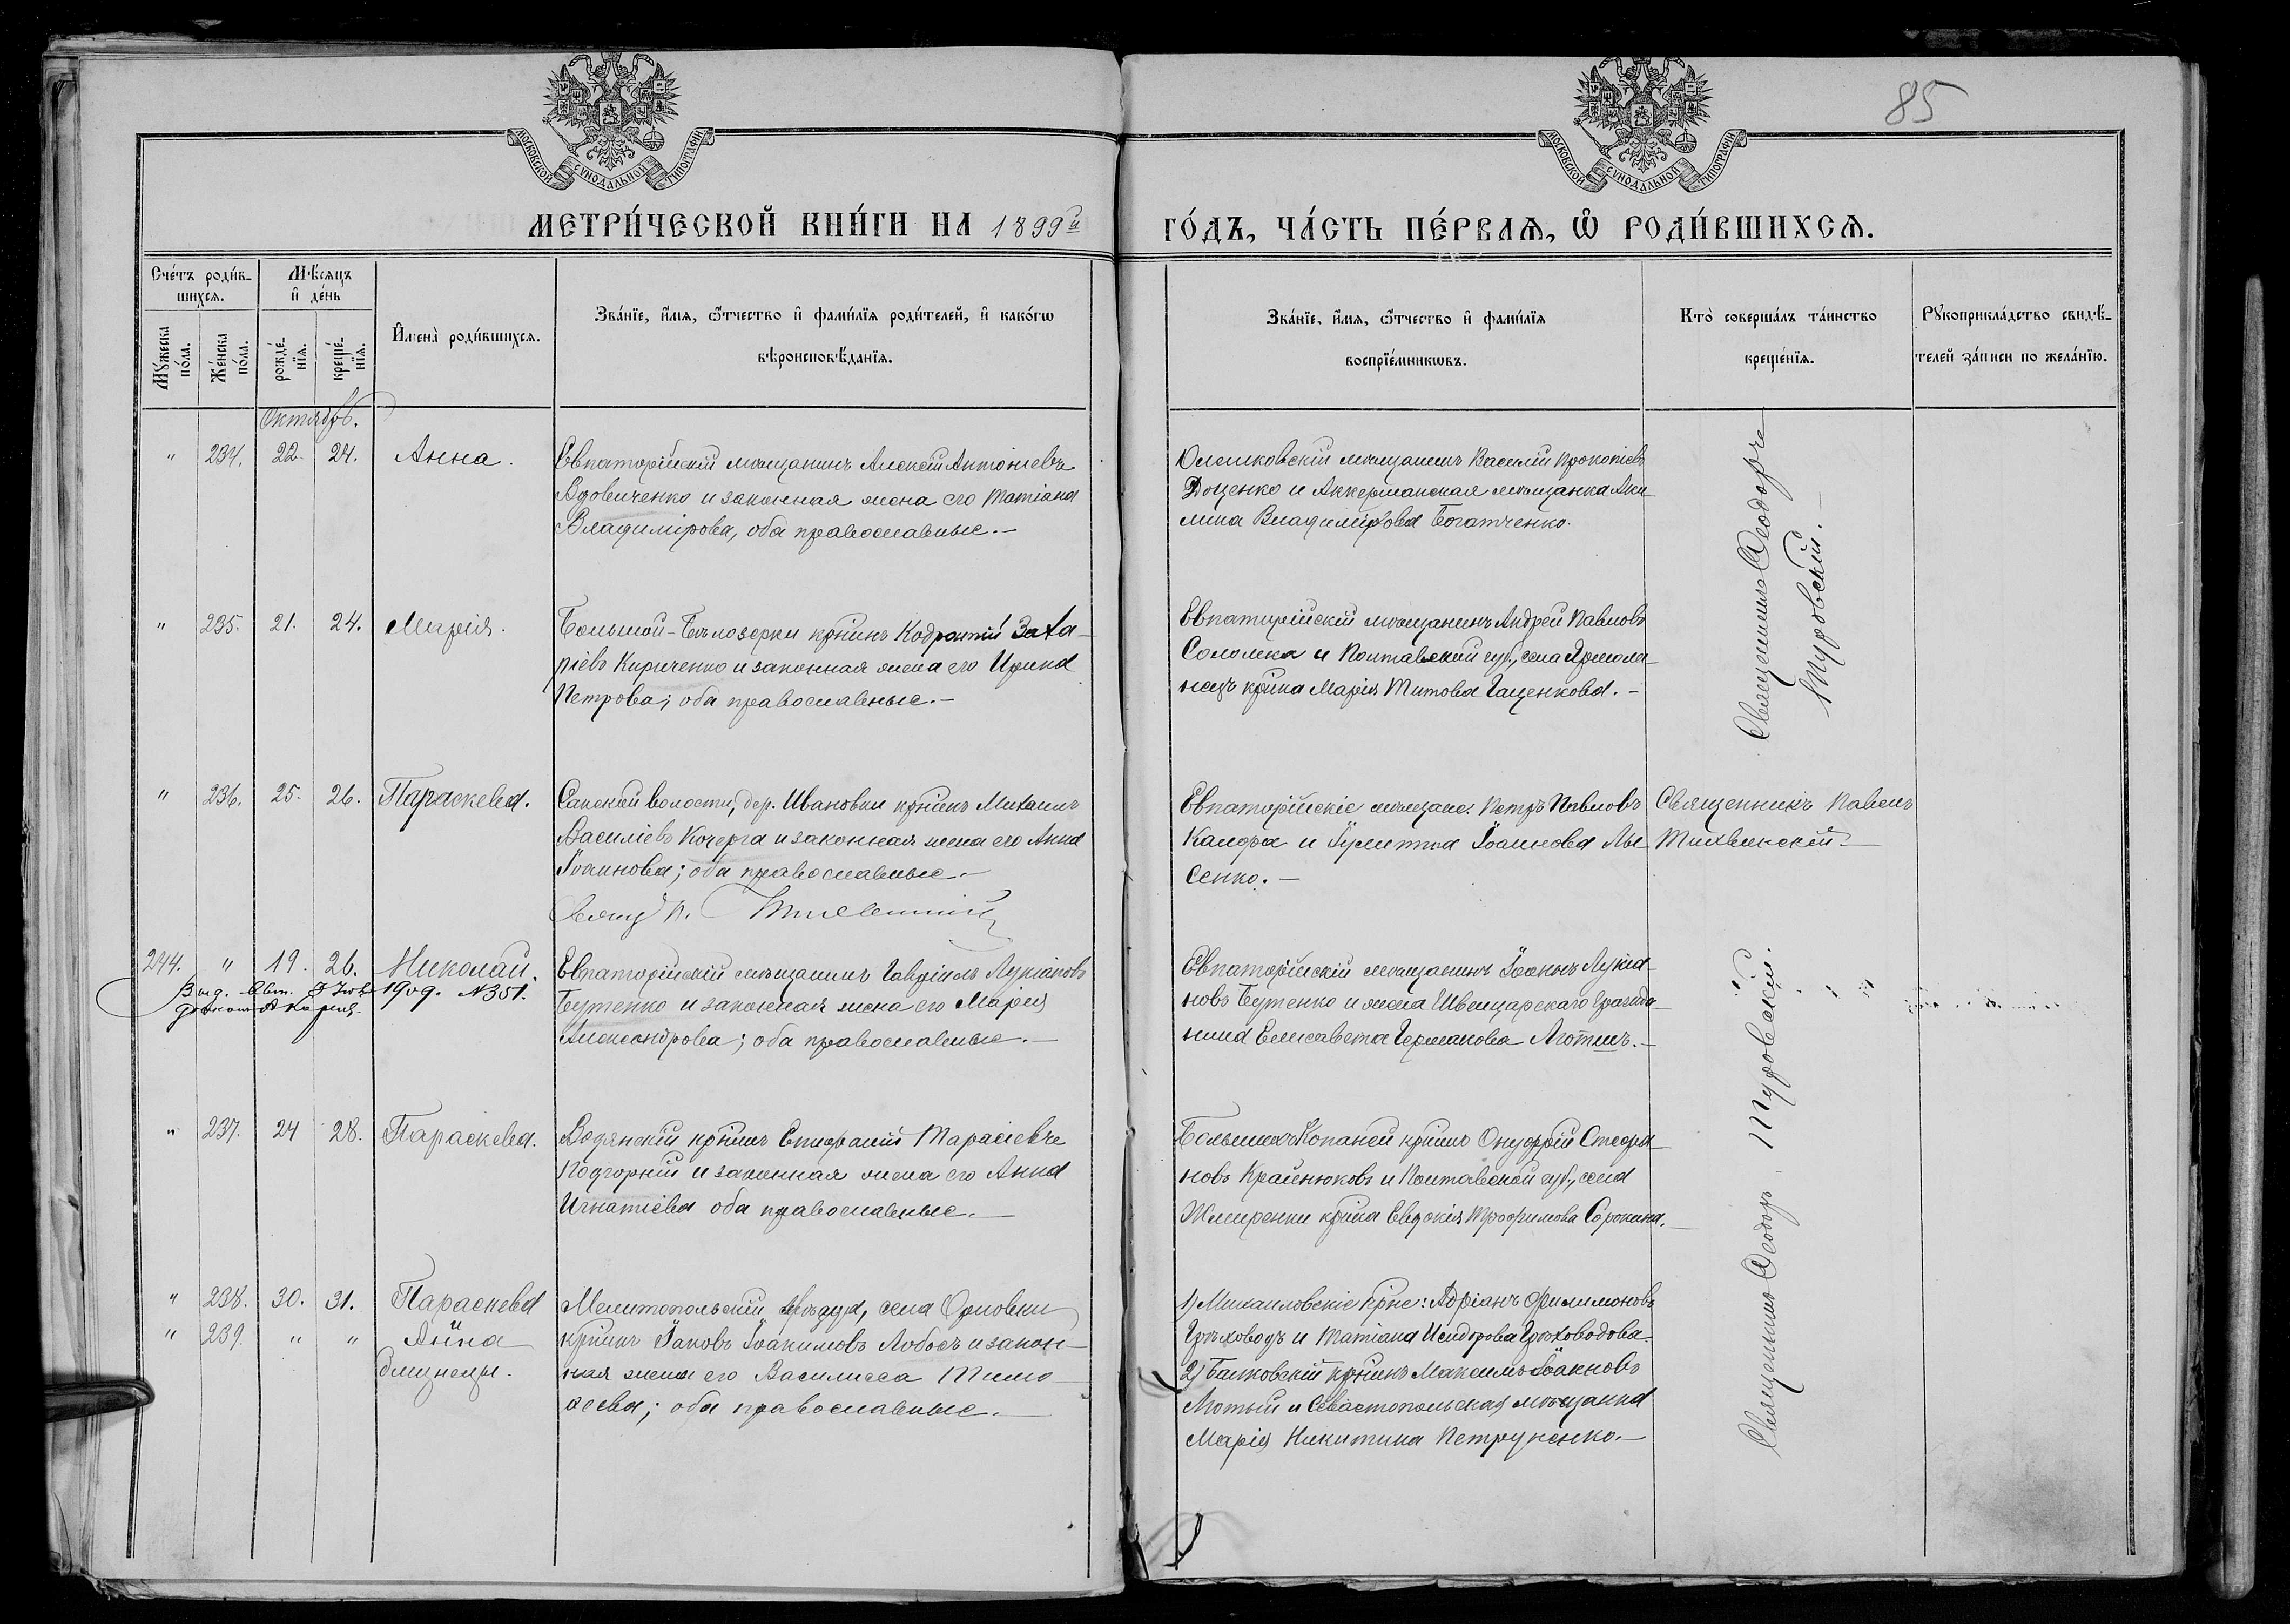 85
МОСКОВСКОЙ СѴНОДАЛЬНОЙ ТИПОГРАФИ
МОСКОВСКОЙ СѴНОДАЛЬНОЙ ТИПОГРАФИ
МЕТРИ́ЧЕСКОЙ КНИ́ГИ НА 1899й
ГО́ДЪ, ЧА́СТЬ ПЕ́РВАѦ, Ѡ҆ РОДИ́ВШИХСѦ.
Сче́тъ роди́в-
шихсѧ.
Мѣ́сѧцъ
и҆ де́нь
Мꙋ́жеска
по́ла.
Же́нска
по́ла.
рожде́-
нїѧ.
креще́-
нїѧ.
И҆мена̀ роди́вшихсѧ.
Зва́нїе, и҆́мѧ, ѻ҆́тчество и҆ фами́лїѧ роди́телей, и҆ како́гѡ
вѣроисповѣ́данїѧ.
Зва́нїе, и҆́мѧ, ѻ҆́тчество и҆ фами́лїѧ
воспрїе́мникѡвъ.
Кто̀ соверша́лъ та́инство
креще́нїѧ.
Рꙋкоприкла́дство свидѣ́-
телей за́писи по жела́нїю.
Октябрь.
" 234. 22. 24. Анна.
Евпаторійскій мѣщанинъ Алексій Антоніевъ
Вдовиченко и законная жена его Татіана
Владимірова, оба православные.-
Олешковскій мѣщанинъ Василій Прокопіевъ
Доценко и Аккерманская мѣщанка Аки
лина Владимірова Богатченко.
Священникъ Ѳеодоръ
Туровскій.-
" 235. 21. 24. Марія.
Большой-Бѣлозерки кр̃нинъ Кодратій Заха-
ріевъ Кириченко и законная жена его Ирина
Петрова; оба православные.-
Евпаторійскій мѣщанинъ Андрей Павловъ
Соломка и Полтавской губ., села Ярмоли-
нецъ кр̃нка Марія Титова Гаценкова.-
" 236. 25. 26. Параскева.
Сакской волости, дер. Ивановки кр̃нинъ Михаилъ
Василіевъ Кочерга и законная жена его Анна
Іоаннова; оба православные.-
Свящ. П. Тихвинскій
Евпаторійскіе мѣщане: Петръ Павловъ
Канфа и Іулитта Іоаннова Лы
сенко.-
Священникъ Павелъ
Тихвинскій.-
244. " 19. 26. Николай.
1909. №351.
Евпаторійскій мѣщанинъ Гавріилъ Лукіановъ
Бутенко и законная жена его Марія
Александрова; оба православные.-
Евпаторійскій мѣщанинъ Іоаннъ Лукіа-
новъ Бутенко и жена Швейцарскаго гражда-
нина Елисавета Германова
" 237. 24 28. Параскева.
Водянскій кр̃нинъ Епифаній Тарасіевъ
Подгорній и законная жена его Анна
Игнатіева оба православные.-
Большихъ Копаней кр̃нинъ Онуфрій Стефа-
новъ Крайнюковъ и Полтавской губ., села
Жмиренки кр̃нка Евдокія Трофимова Сорокина.
Священникъ Ѳеодоръ Туровскій.
" 238. 30. 31. Параскева
" 239. " " Анна
близнецы.
Мелитопольскій уѣзда, села Орловки
кр̃нинъ Іаковъ Іоакимовъ Лобасъ и закон-
ная жена его Василисса Тимо
ѳеева; оба православные.-
1) Михаиловскіе кр̃не: Адріанъ Филимоновъ
Грѣховодъ и Татіана Исидорова Грѣховодова.
2) Балковскій кр̃нинъ Максимъ Іоанновъ
Лютый и Севастопольская мѣщанка
Марія Никитина Петруненко.-